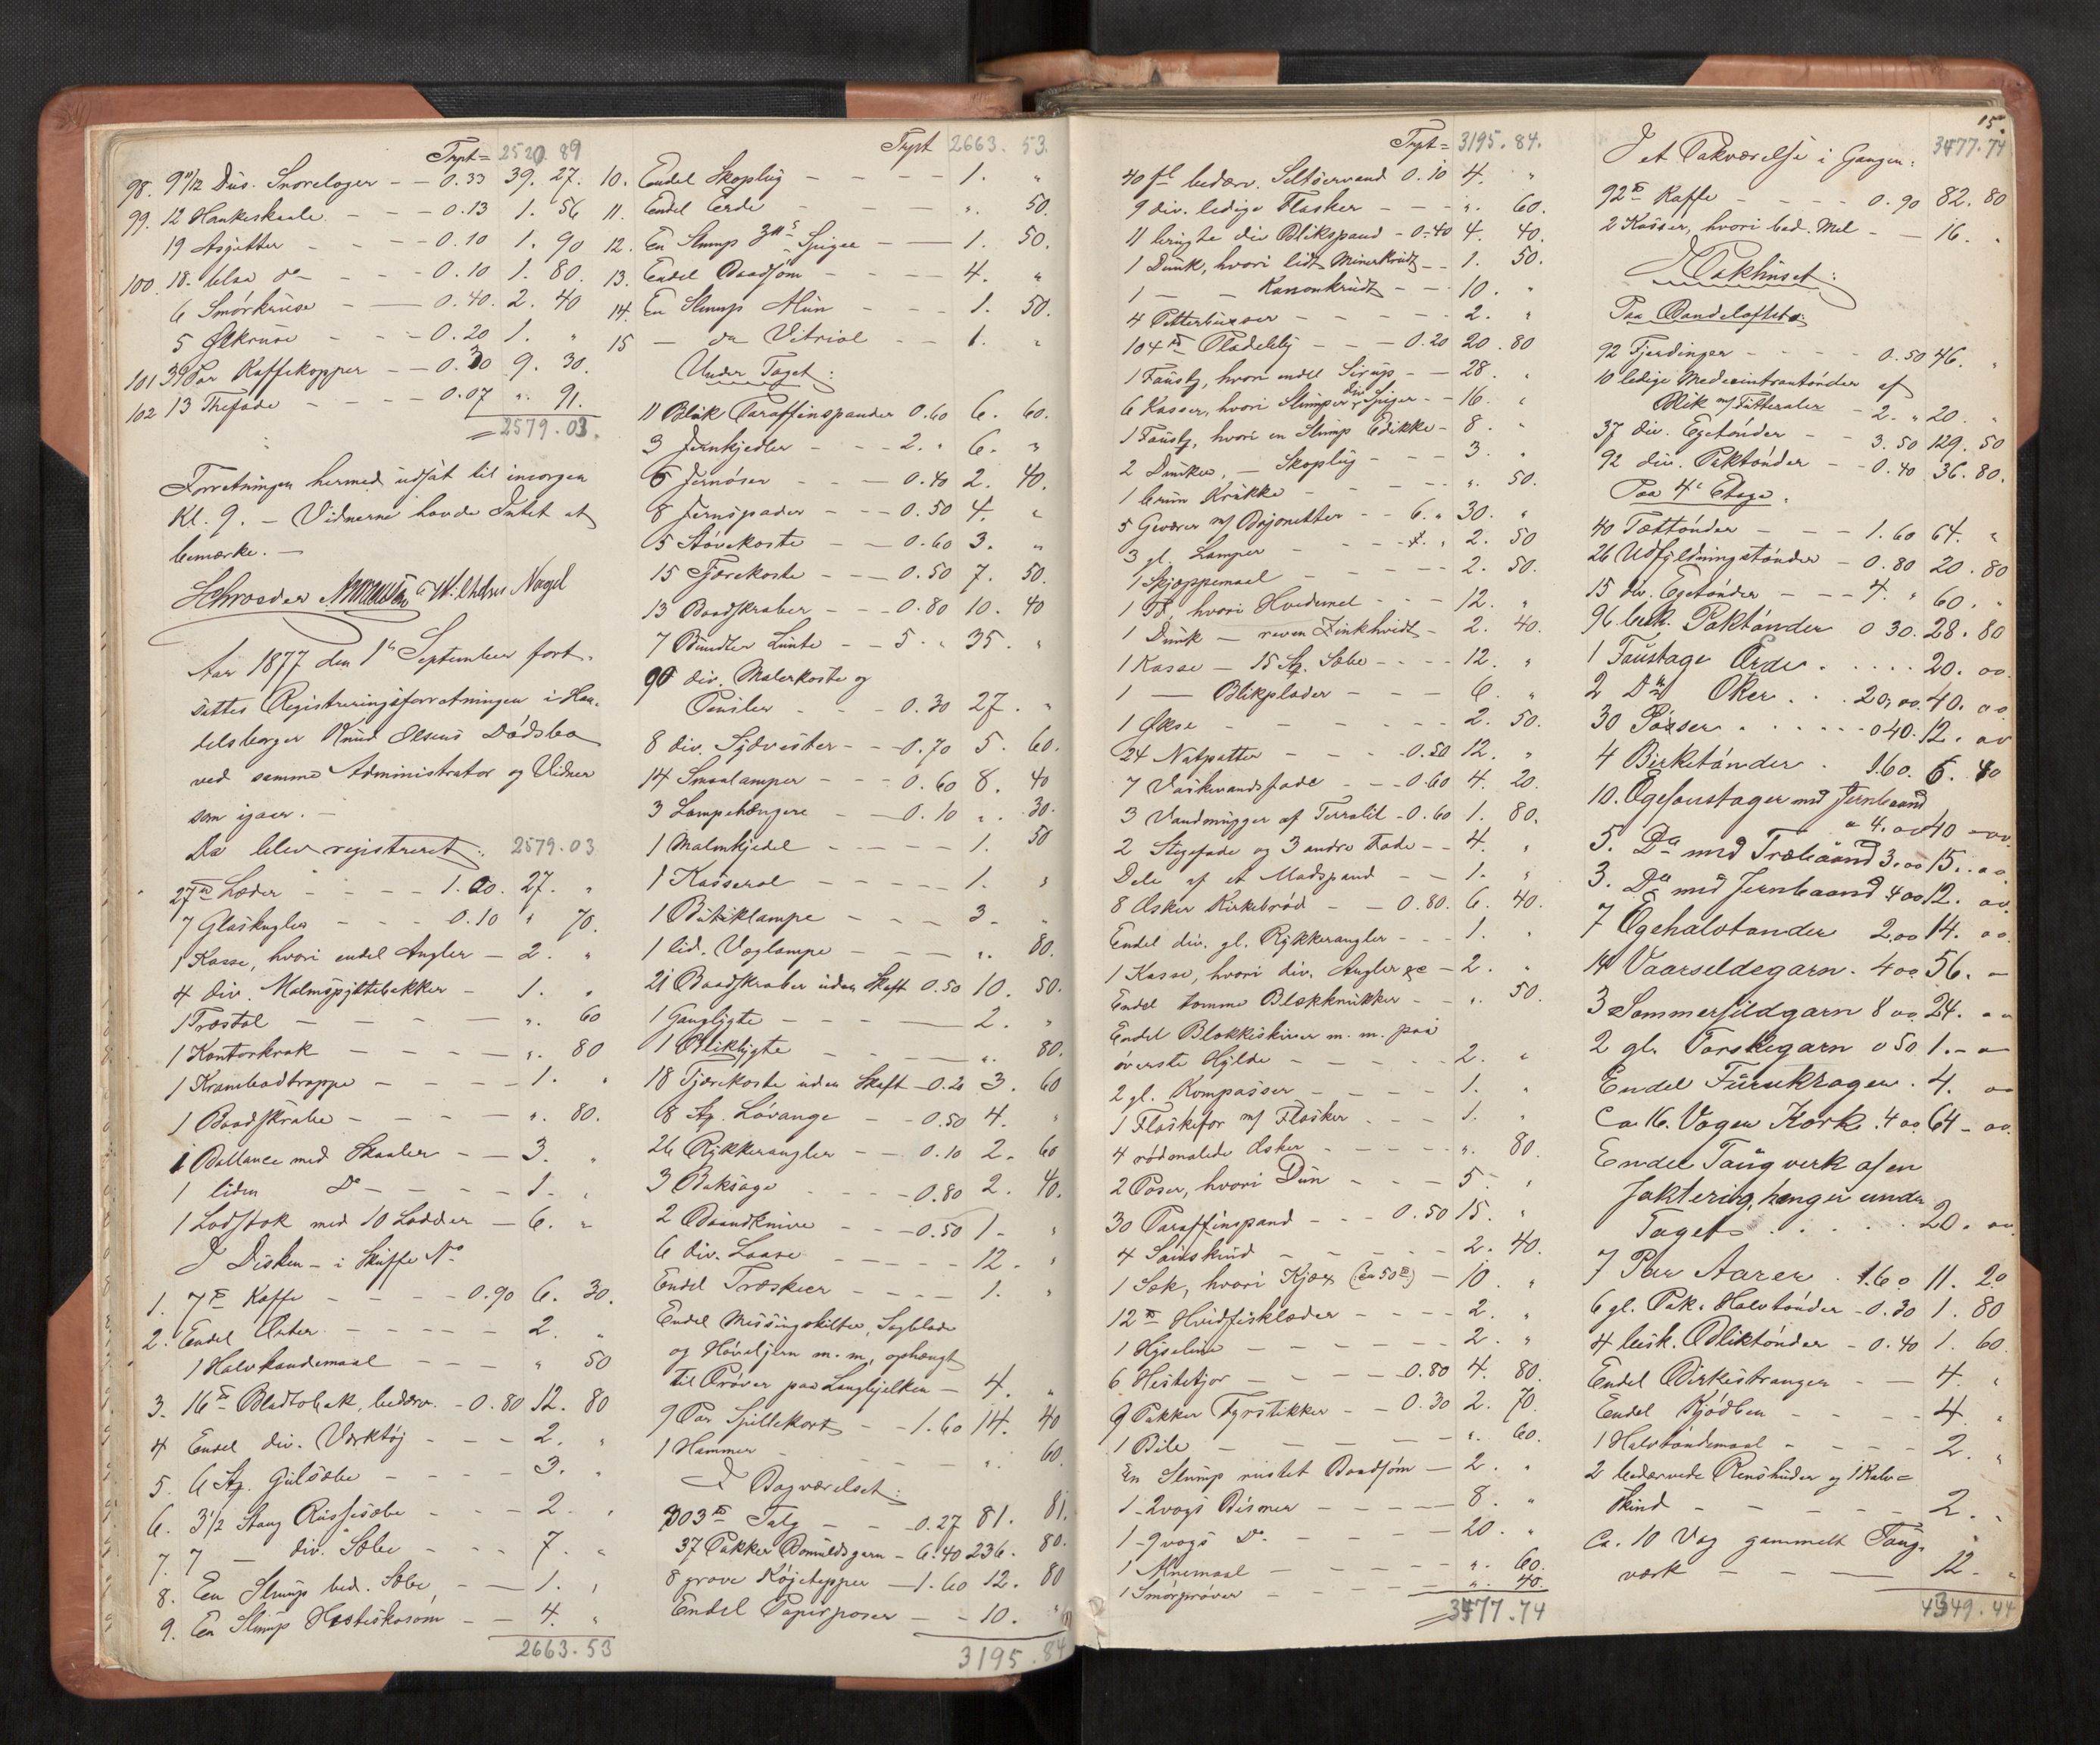 Trpt = 2520. 89
98. 9 11/12 Dus. Snoreloger - - 0.33 39. 27.
99. 12 Hankeskaale - - - 0.13 1. 56
19 Asjetter - - - - 0.10 1. 90
100. 18. blaa do - - - - 0.10 1. 80.
6 Smørkruse - - 0.40. 2. 40
5 Ølkruse - - - 0.20 1. "
101 31 Par Kaffekopper - - 0.30 9. 30.
102 13 Thefade - - - - 0.07 ". 91.
= 2579. 03.
Forretningen hermed udsat til imorgen
Kl. 9. - Vidnerne havde Intet at
bemærke. -
Schroeder Wilhelm Nagel
Aar 1877 den 1ste September fort-
sattes Registreringsforretningen i Han-
delsborger Knud Olsens Dødsbo
ved samme Administrator og Vidner
som igaar. -
Da blev registreret: 2579. 03
27 ℔ Læder - - - 1.00. 27. "
7 Glaskugler - - - 0.10 " 70.
1 Kasse, hvori endel Angler - 2. "
4 div. Malmspyttebakker - 1. "
1 Træstol - - - - - ". 60
1 Kontorkrak - - - - ". 80
1 Krambodtrappe - - - - 1. "
1 Baadskrabe - - - - - ". 80.
1 Ballance med Skaaler - - 3. "
1 liden Do - - - - 1. "
1 Lodstok med 10 Lodder - 6. "
I Disken - i Skuffe No
1. 7 ℔ Kaffe - - - - 0.90 6. 30.
2. Endel Erter - - - - - 2. "
1 Halvkandemaal - - - " 50
3. 16 ℔ Bladtobak, bedærv. - 0.80 12. 80
4 Endel div. Værktøj - - - 2. "
5. 6 Stg. Gulsæbe - - - - 3. "
6. 3 1/2 Stang Russesæbe - - - 2. "
7. 7 - div. Sæbe - - - 7. "
8. En Slump bed. Sæbe - - 1. "
9. En Slump Hesteskosøm - - 4. "
2663. 53
Trpt 2663. 53.
10. Endel Skoplug - - - - 1. "
11. Endel Erde - - - ". 50.
12. En Slump 3"s Spiger - - 1. 50.
13. Endel Baadsøm - - - - 4. "
14. En Slump Alun - - - 1. 50.
15 - do Vitriol - - 1. "
Under Taget:
11 Blik Paraffinspander 0.60 6. 60.
3 Jernkjedler - - - 2. " 6. "
6 Jernøser - - - 0.40 2. 40.
8 Jernspader - - - 0.50 4. "
5 Støvekoste - - 0.60 3. "
15 Tjærekoste - - - 0.50 7. 50.
13 Baadskraber - - - 0.80 10. 40
7 Bundter Lunte - - 5. " 35. "
90 div. Malerkoste og
Pensler - - - 0.30 27. "
8 div. Sydvester - - - 0.70 5. 60.
14 Smaalamper - - - 0.60 8. 40
3 Lampehængere - - 0.10 ". 30.
1 Malmkjedel - - - - - 1. 50
1 Kasserol - - - - - 1. "
1 Butiklampe - - - - 3. "
1 lid. Væglampe - - - - ". 80.
21 Baadskraber uden Skaft 0.50 10. 50.
1 Ganglygte - - - - 2. "
1 Bliklygte - - - - - ". 80.
18 Tjærekoste uden Skaft - 0.20 3. 60
8 Stg. Løvange - - 0.50 4. "
26 Rykkerangler - - 0.10 2. 60
3 Baksage - - - - 0.80 2. 40.
2 Baandknive - - - 0.50 1. "
6 div. Laase - - - - - 12. "
Endel Træskeer - - - - 1. "
Endel Messingskilter, Sagblade
og Høveljern m. m., ophængt
til Prøver paa Langhjelken - 4. "
9 Par Spillekort - - 1.60 14. 40
1 Hammer - - - - ". 60.
I Bagværelset:
303 ℔ Talg - - - 0.27 81. 81.
37 Pakker Bomuldsgarn - 6.40 236. 80.
8 grove Køjetepper - 1.60 12. 80
Endel Papirposer - - 10. "
3195. 84
Trpt = 3195. 84.
40 fl bedærv. Seltservand 0.10 4. "
9 div. ledige Flasker - - - ". 60.
11 brugte div Blikspand - 0.40 4. 40.
1 Dunk, hvori lidt Minerkrudt - - 1. 50.
1 - - Kanonkrudt - - - 10. "
4 Petterbusser - - - - - 2. "
104 ℔ Pladebly - - - 0.20 20. 80
1 Fustg, hvori endel Sirup - - 28. "
6 Kasser, hvori Slumper div Spiger - - 16. "
1 Fustg, hvori en Slump Edikke - 8. "
2 Dunker, - Skoplug - - - 3. "
1 brun Krukke - - - - - ". 50.
5 Geværer m/ Bajonetter - - 6. " 30. "
3 gl. Lamper - - - - - 2. 50
1 Skjæppemaal - - - - - 2. 50.
1 Td. hvori Hvedemel - - - 12. "
1 Dunk - reven Zinkhvidt - 2. 40.
1 Kasse - 15 Stg. Sæbe - - - - 12. "
1 - Blikplader - - - 6. "
1 Øxe - - - - - - - 2. 50.
24 Natpotter - - - - 0.50 12. "
7 Vaskevandsfade - - 0.60 4. 20.
3 Vandmugger af Terralit - 0.60 1. 80.
2 Stegefade og 3 andre Fade - - 4. "
Dele af et Madspand - - 1. "
8 Æsker Kirkebrød - - 0.80. 6. 40.
Endel div. gl. Rykkerangler - - - 1. "
1 Kasse, hvori div. Angler &c - 2. "
Endel tomme Blækkrukker - - ". 50.
Endel Blokkeskiver m. m. paa
øverste Hylde - - - - - 2. "
2 gl. Kompasser - - - - 1. "
1 Flaskefor m/ Flasker - - - 1. "
4 rødmalede Æsker - - - - - ". 80.
2 Poser, hvori Dun - - - 5. "
30 Paraffinspand - - - 0.50 15. "
4 Saueskind - - - - - 2. 40.
1 Sæk, hvori Kjæx (ca 50 ℔) - 10. "
12 ℔ Hvidfisklæder - - - - 2. "
1 Hyseline - - - - - 2. "
6 Hestetjor - - - - 0.80 4. 80.
9 Pakker Fyrstikker - - 0.30 2. 70.
1 Bile - - - - - - ". 60.
En Slump rustet Baadsøm - 2. "
1 - 2vogs Bismer - - - - - 8. "
1 - 9vogs Do. - - - - - 20. "
1 Alnemaal - - - - - ". 60.
1 Smørprøver - - - - - ". 40.
= 3477. 74
15.
3477. 74
I et Pakværelse i Gangen:
92 ℔ Kaffe - - - - - 0.90 82. 80
2 Kasser, hvori bed. Mel - - 16. "
I Pakhuset:
Paa Bandeloftet:
92 Fjerdinger - - - - 0.50 46. "
10 ledige Medecintrantønder af
Blik m/ Futteraler - 2. " 20. "
37 div. Egetønder - - 3.50 129. 50
92 div. Paktønder - - 0.40 36. 80.
Paa 4de Etage.
40 Tættønder - - - 1.60 64. "
26 Udfyldningstønder - 0.80 20. 80
15 div. Egetønder - - - 4. " 60. "
96 besk. Paktønder 0 30. 28. 80
1 Faustage Erde . . . . . 20. 00.
2 Do Oker . . . 20,00. 40. 00
30 Posser . . . . . . 0 40. 12. 00
4 Birketønder . 1.60. 6. 40
10. Egefoustager med Jernbaand
a 4. 00 40 - 00.
5. Do med Træbaand 3.00 15. . 00.
3. Do med Jernbaand 4 00 12. 00.
7 Egehalvtønder 2,00 14. 00.
14 Vaarseldegarn . 4 00 56. -
3 Sommersildgarn 8 00 24. 00
2 gl. Torskegarn 0 50. 1. - 0
Endel Furukrager . 4. 00
Ca 16. Voger Kork . 4 00 64 - 00.
Endel Taugverk af en
Jaktering, hænger under
Taget . . . . . 20. 00
7 Par Aarer . 1.60 11. 20
6 gl. Pak. Halvtønder - 0.30 1. 80
4 besk. Bliktønder - 0.40 1. 60.
Endel Birkestranger - - 4. "
Endel Kjødben - - - - 4. "
1 Halvtøndemaal - - - - 2. "
2 bedærvede Renshuder og 1 Kalv=
skind - - - - - 2. "
Ca. 10 Vog gammelt Taug-
værk - - - - 12. "
4349. 44